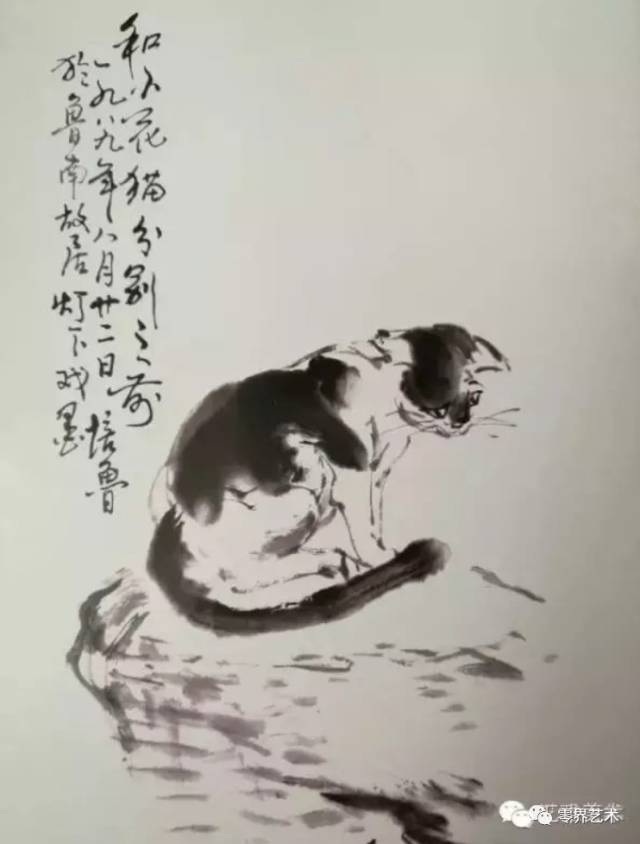 和小花猫分别之前
一九八九年八月廿二日 培鲁
於鲁南故居灯下戏墨
零界艺术